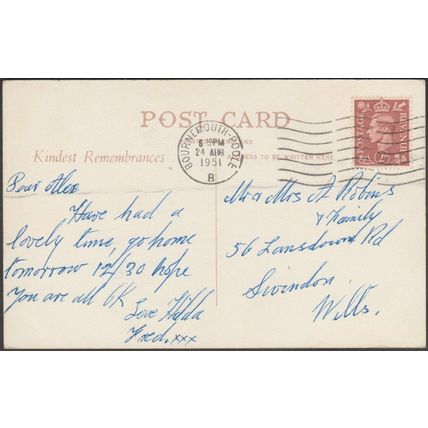 POST CARD
Kindest Remembrances
BOURNEMOUTH-POOLE
6 PM
24 AUG
1951
B
ESS TO BE WRITTEN HERE
POSTAGE
REVENUE
Dear Alex
Have had a
lovely time, go home
tomorrow 12/30 hope
You are all OK
Love Hilda
Fred. xxx
Mr & Mrs A Robins
& Family
56 Lansdown Rd
Swindon
Wilts.